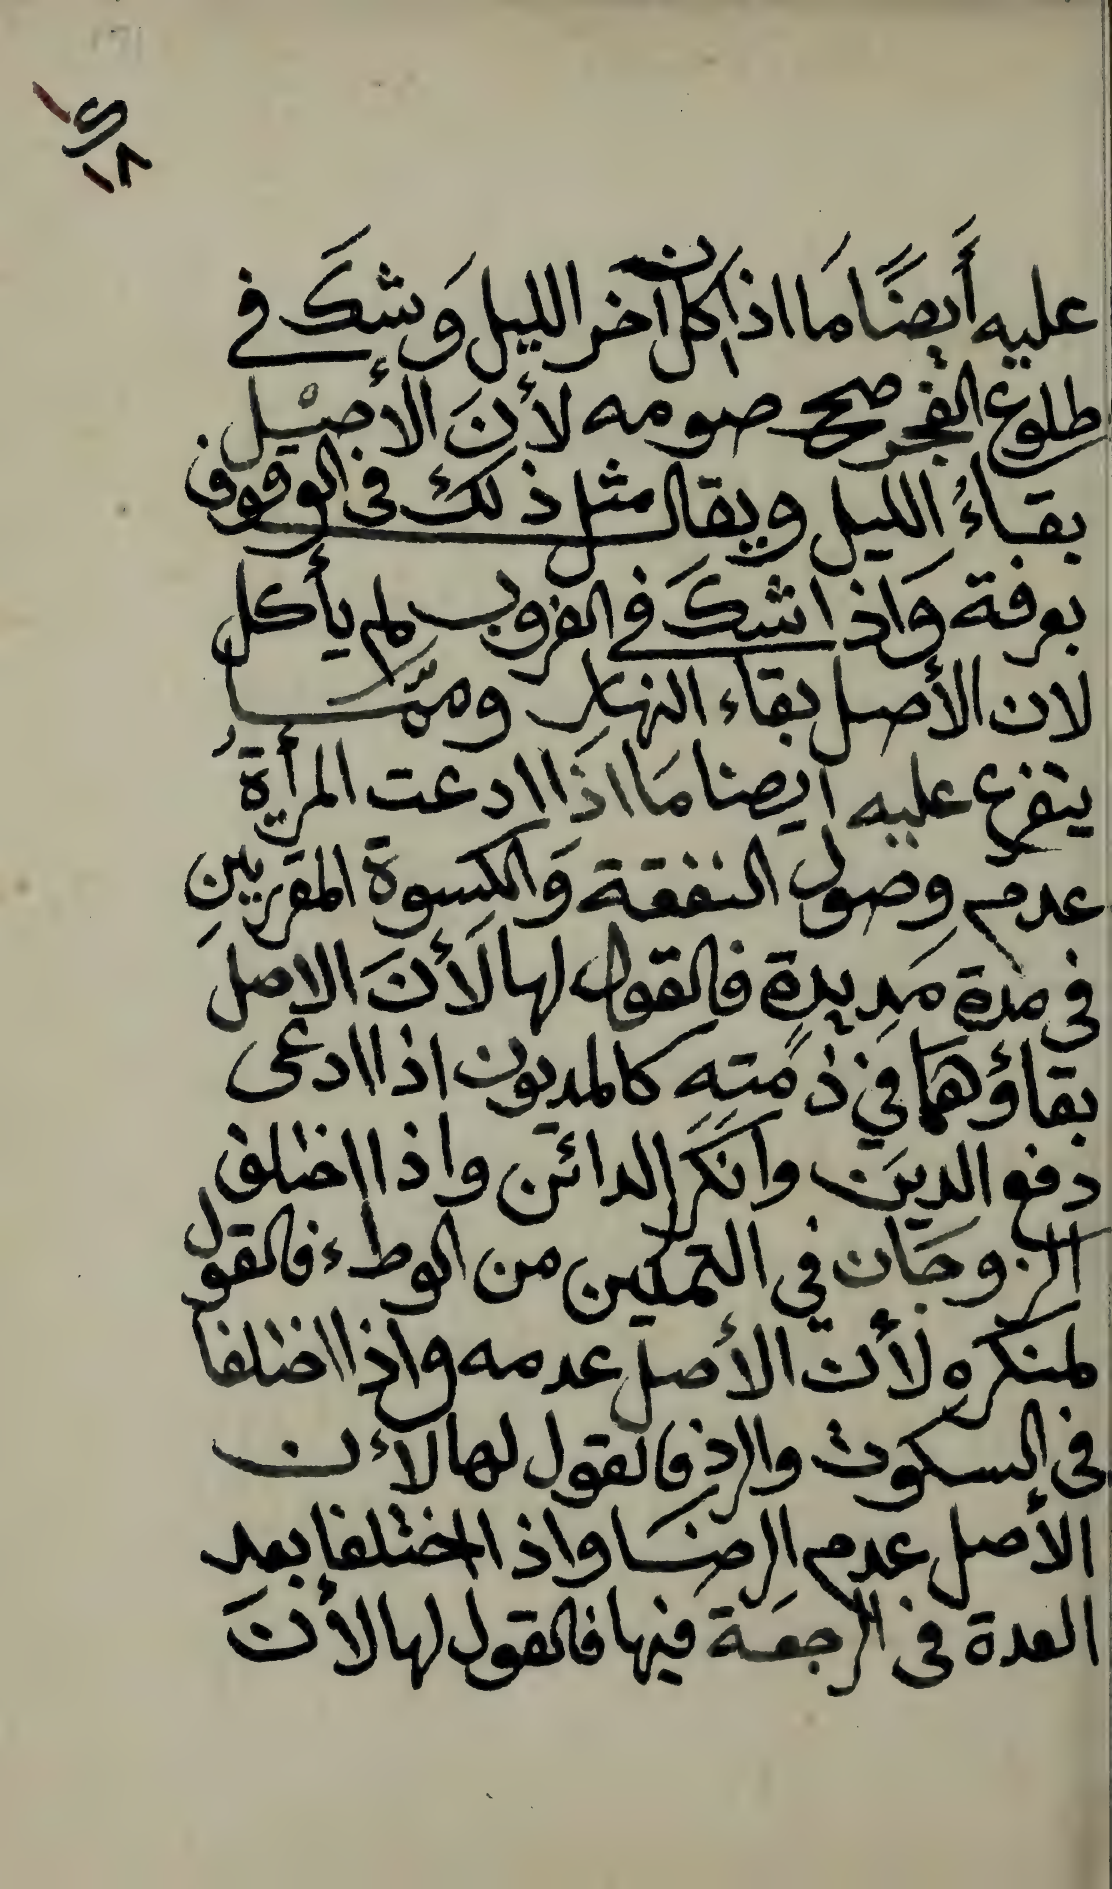 ١٨
عليه أَيضًا مَا اذا كل آخر الليل وَشكَ في
طلوع الفجر صح صومه لأنَ الأصْل
بقاءُ الليل ويقال مثل ذلك في الوقوف
بعرفة وَاذا شكَ في الغروب لم يأكل
لان الأصل بقاء النهار وممّا
يتفرع عليه أيضا مَا اذَا ادعت المرأةُ
عدم وصول النفقة وَالكسوة المقررتينِ
في مدة مَديدةٍ فالقول لها لَأنَ الاصل
بقاؤهمَا في ذمته كالمديون اذا ادعى
دفع الدين وانكَرَ الدائن واذا اختلف
الزوجَان في التمكين من الوطء فالقول
لمنكره لأنّ الأصل عدمه واذا اختلفا
في السكوت والرد فالقول لها لأن
الأصل عدم الرضَا واذا اختلفا بعد
العدة في الرجعَة فيها فالقول لها لأنَ